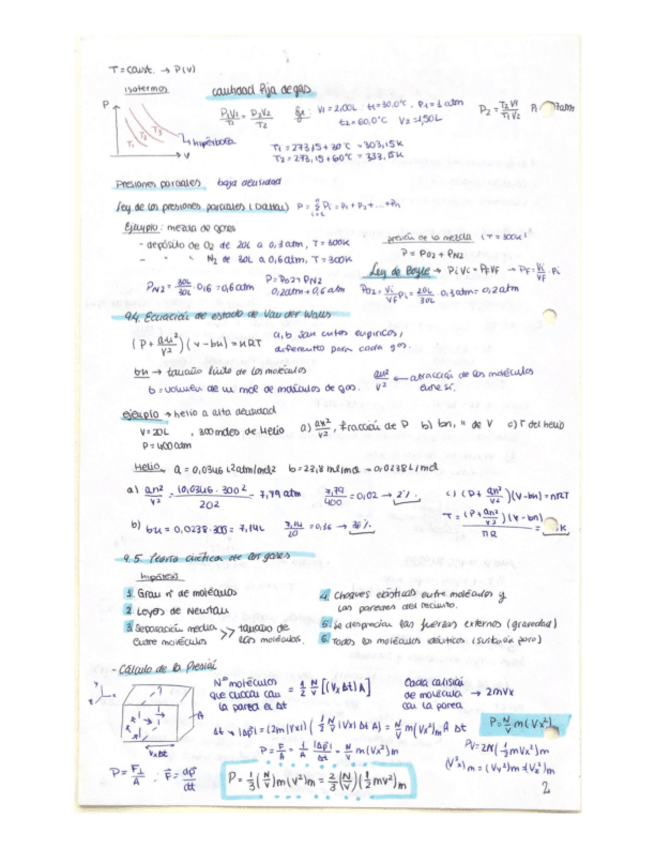 T = const. → P(V)
isotermos
cantidad fija de gas
P
T1 T2 T3
hipérbola
V
P1V1/T1 = P2V2/T2
Ej: V1 = 2,00L t1 = 30,0°C, P1 = 1 atm
t2 = 60,0°C V2 = 1,50L
P2 = T2 V1 / T1 V2
T1 = 273,15 + 30°C = 303,15K
T2 = 273,15 + 60°C = 333,15K
Presiones parciales baja densidad
Ley de las presiones parciales (Dalton) P = Σ Pi = P1 + P2 + ... + Pn
Ejemplo: mezcla de gases
- depósito de O2 de 20L a 0,3 atm, T = 300K
- " " N2 de 30L a 0,6 atm, T = 300K
presión de la mezcla (T = 300K)
P = PO2 + PN2
Ley de Boyle → PiVi = PFVF → PF = Vi/VF · Pi
PN2 = 30L/30L · 0,6 = 0,6 atm
P = PO2 + PN2
0,2 atm + 0,6 atm
PO2 = Vi/VF Pi = 20L/30L · 0,3 atm = 0,2 atm
9.4. Ecuación de estado de Van der Waals
(P + an²/V²)(V - bn) = nRT
a, b son cntes empíricas,
diferentes para cada gas.
bn → tamaño finito de las moléculas
b = volumen de un mol de moléculas de gas.
an²/V² ← atracción de las moléculas
entre sí.
ejemplo → helio a alta densidad
V = 20L, 300 moles de Helio a) an²/V², fracción de P b) bn, " de V c) T del helio
P = 400 atm
Helio a = 0,0346 L² atm/mol² b = 23,8 ml/mol → 0,0238 L/mol
a) an²/V² = (0,0346 · 300²)/20² = 7,79 atm 7,79/400 = 0,02 → 2%
b) bn = 0,0238 · 300 = 7,14L 7,14/20 = 0,36 → 36%
c) (P + an²/V²)(V - bn) = nRT
T = (P + an²/V²)(V - bn) / nR = K
9.5. Teoría cinética de los gases
hipótesis
1. Gran nº de moléculas
2. Leyes de Newton
3. Separación media entre moléculas >> tamaño de las moléculas.
4. Choques elásticos entre moléculas y
las paredes del recinto.
5. Se desprecian las fuerzas externas (gravedad)
6. Todas las moléculas idénticas (sustancia pura)
- Cálculo de la Presión
Nº moléculas que chocan con la pared en Δt = 1/2 N/V [(Vx Δt) A]
Cada colisión de molécula con la pared → 2mVx
A
VxΔt
Δt → |Δp| = (2m|Vx|)(1/2 N/V |Vx| Δt A) = N/V m(Vx²)m A Δt
P = N/V m(Vx²)
P = F/A = 1/A |Δp|/Δt = N/V m(Vx²)m
PV = 2N(1/2 mVx²)m
(V²x)m = (Vy²)m = (Vz²)m
P = F⊥/A ; F = dp/dt
P = 1/3 (N/V) m(V²)m = 2/3 (N/V)(1/2 mv²)m
2